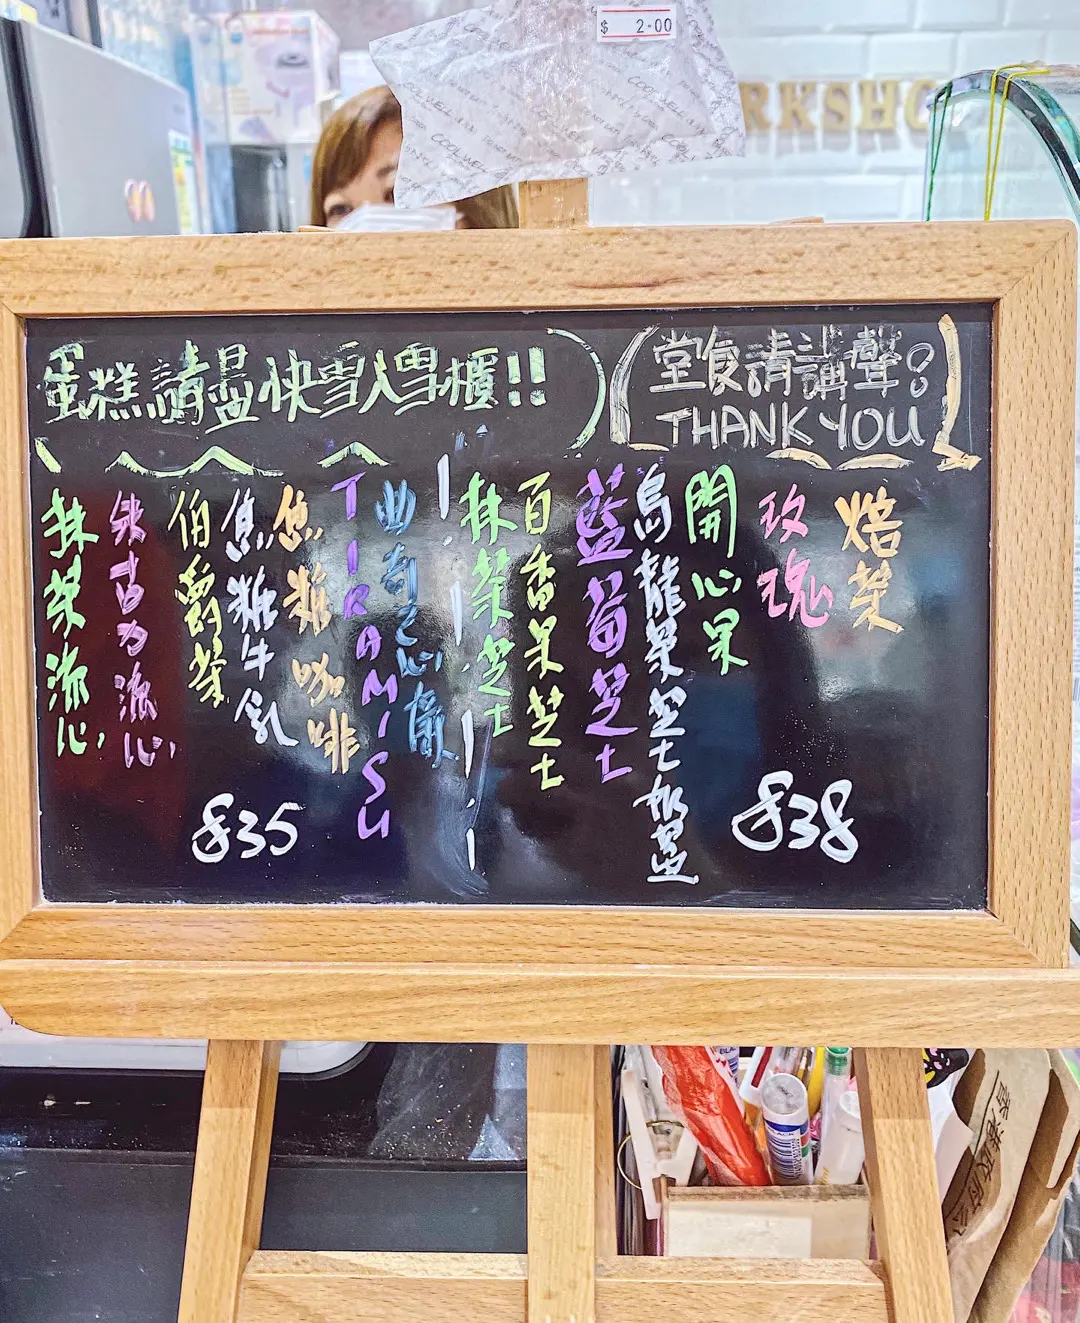 $ 2.00
COOLWELL
RKSHO
蛋糕請盡快雪入雪櫃!!
堂食請講聲。
THANK YOU
抹茶流心
朱古力流心
伯爵茶
焦糖牛乳
焦糖咖啡
TIRAMISU
曲奇之心
抹茶芝士
百香果芝士
藍莓芝士
烏龍茶芝士
開心果
玫瑰
焙茶
$35
$38
BLACK
香港政府公